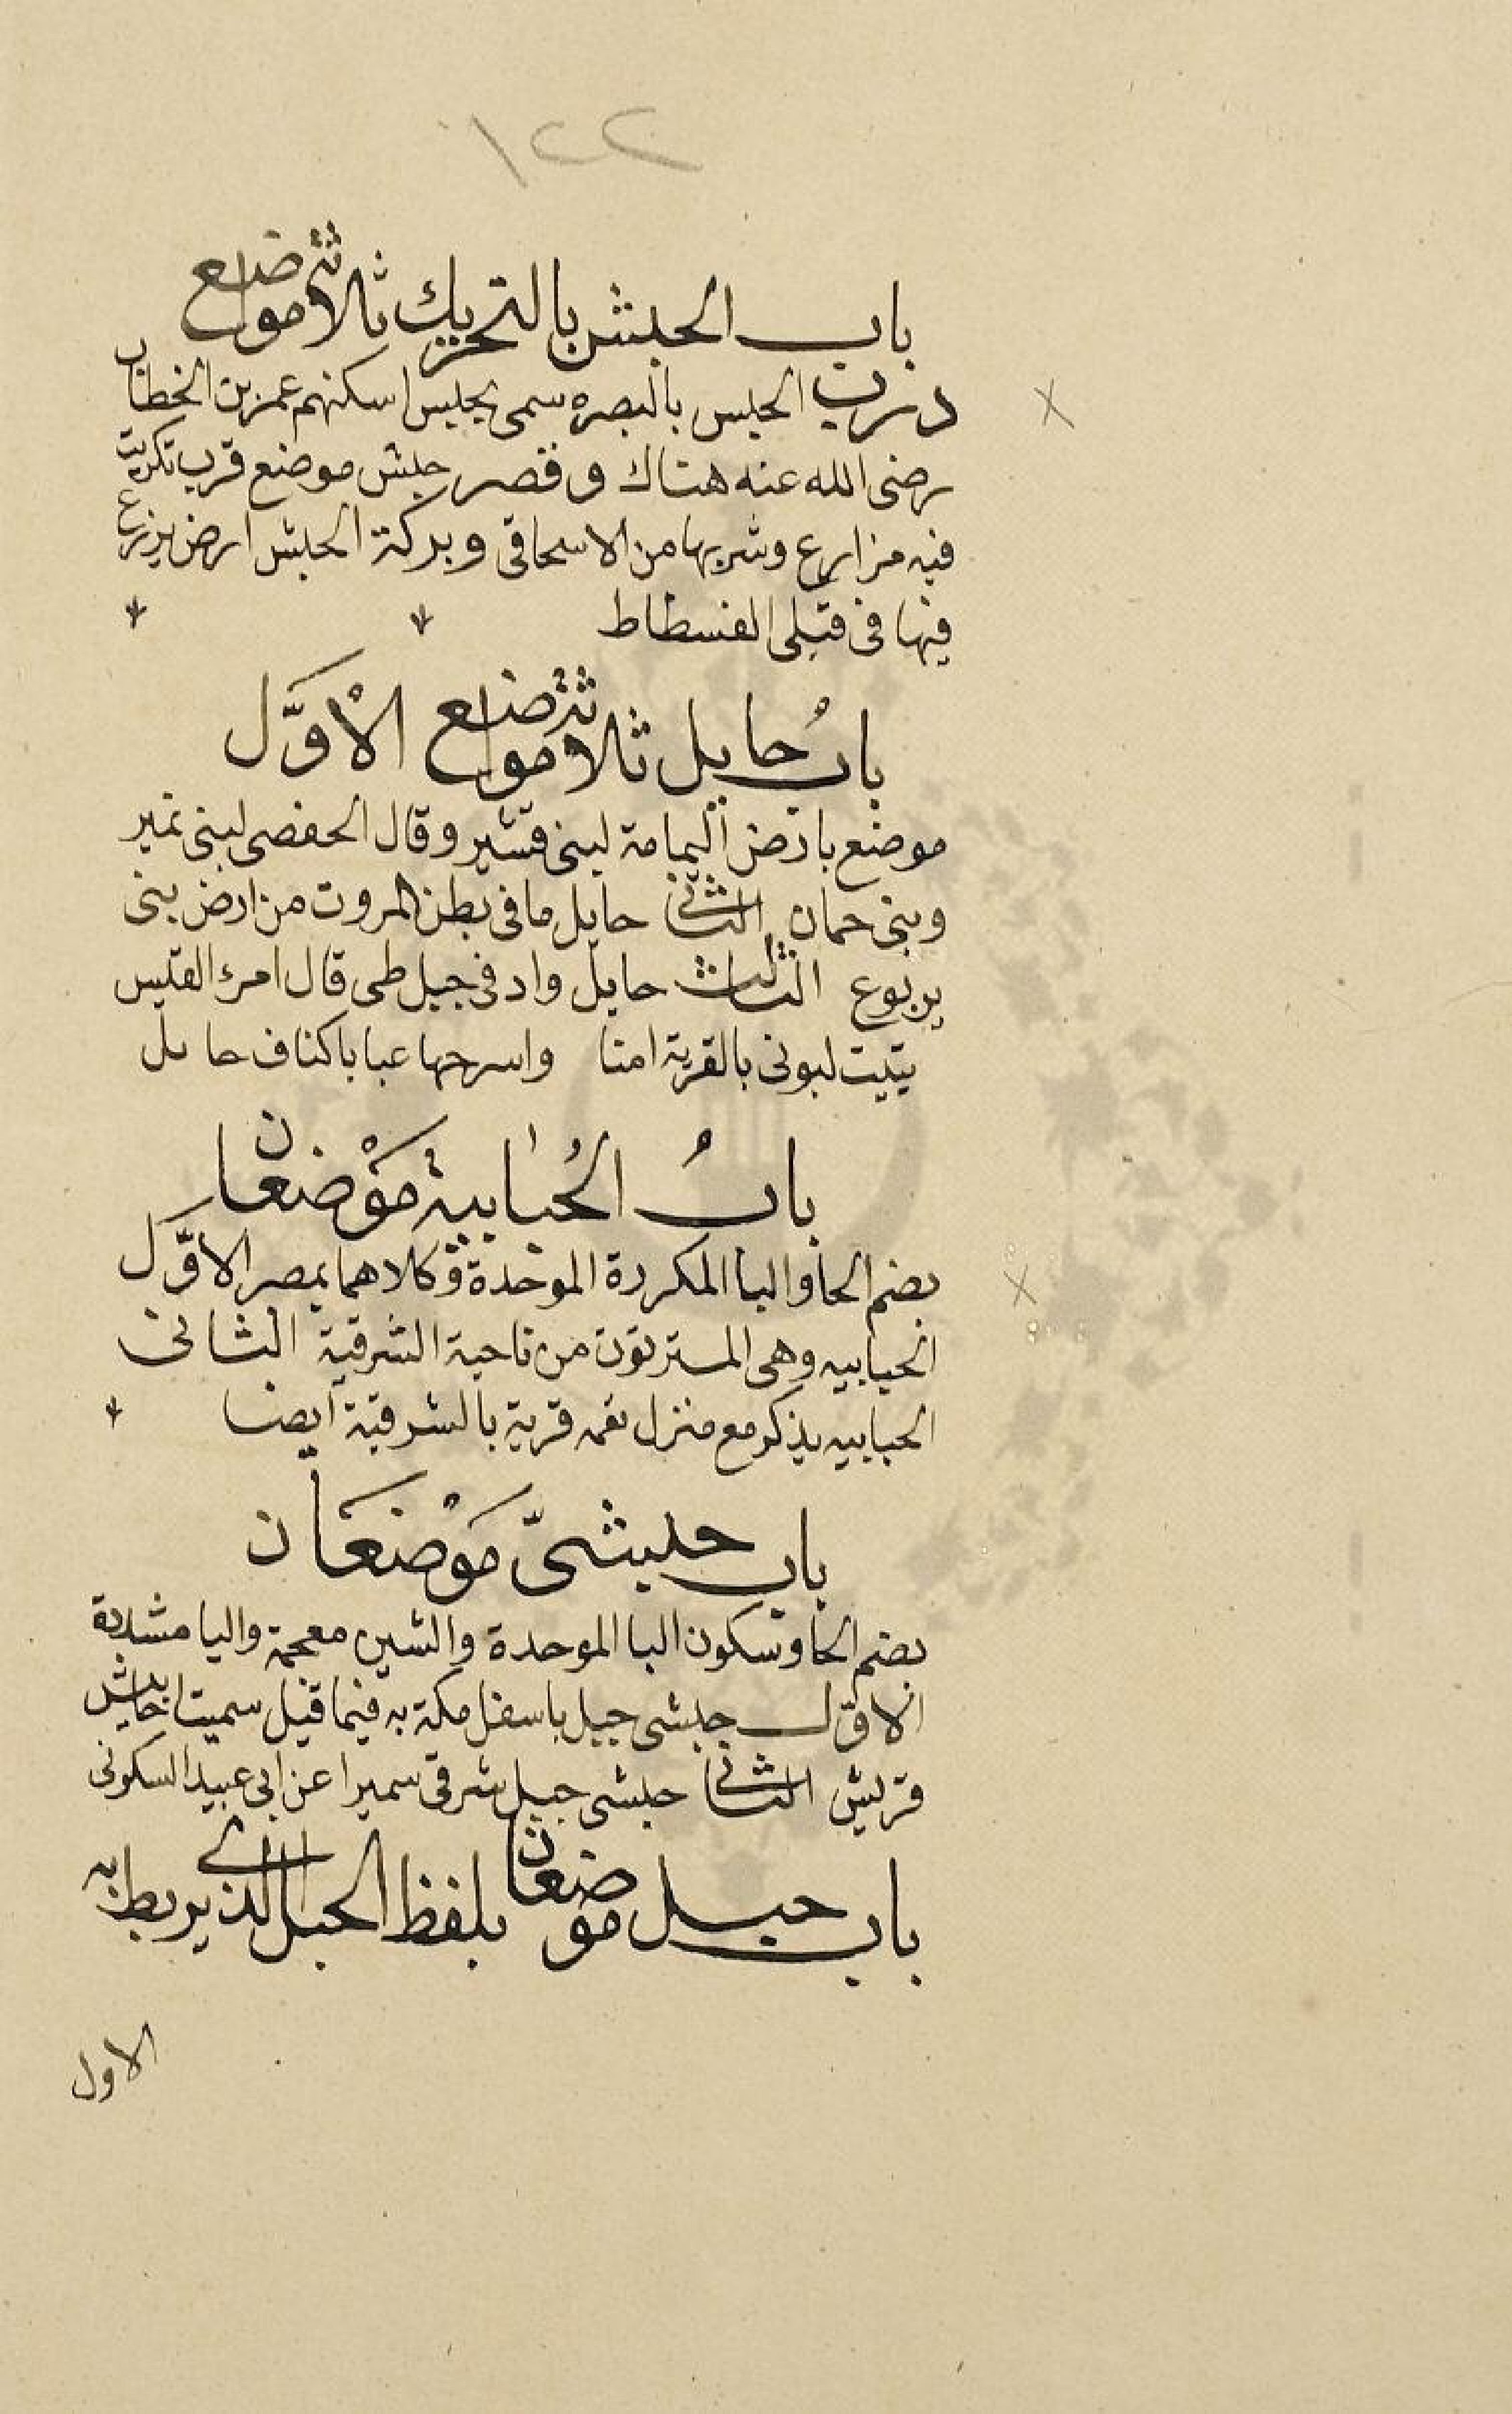 ١٢٢
باب الحبش بالتحريك ثلاثة مواضع
درب الحبس بالبصره سمى بحبيس اسكنهم عمر بن الخطاب
رضى الله عنه هناك وقصر حبش موضع قرب تكريت
فيه مزارع وشربها من الاسحاقى وبركة الحبش ارض يزرع
فيها فى قبلى الفسطاط
بابُ حايل ثلاثة مواضع الأوَّل
موضع بارض اليمامة لبنى قشير وقال الحفصى لبنى نمير
وبنى حمان الثانى حايل ما فى بطن المروت من ارض بنى
يربوع الثالث حايل واد فى جبل طى قال امرء القيس
تبيت لبونى بالقرية امنا واسرحها عبا باكناف حايل
بابُ الحُبابية مَوْضعان
بضم الحا والبا المكررة الموحدة وكلاهما بمصر الاوَّل
الحبابيه وهى المستريون من ناحية الشرقية الثانى
الحبابيه يذكر مع منزل نعمه قرية بالشرقية ايضا
باب حبيشىّ مَوْضعَان
بضم الحا وسكون البا الموحدة والشين معجمة واليا مشددة
الاوّل حبشى جبل باسفل مكة به فيما قيل سميت احابيش
قريش الثانى حبشى جبل شرقى سميرا عن ابى عبيد السكونى
باب حبل موضعان بلفظ الحبل الذى يربط به
الاول